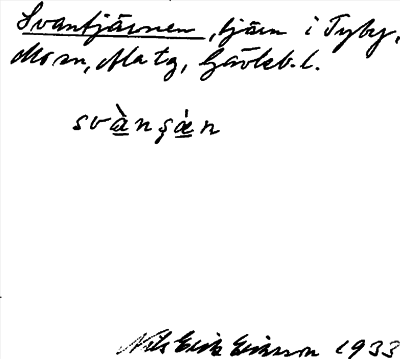 Svantjärnen, tjärn i Tyby,
Morn, Matg, Gävleb. l.
svànşæ̀n
Nils Erik Eriksson 1933